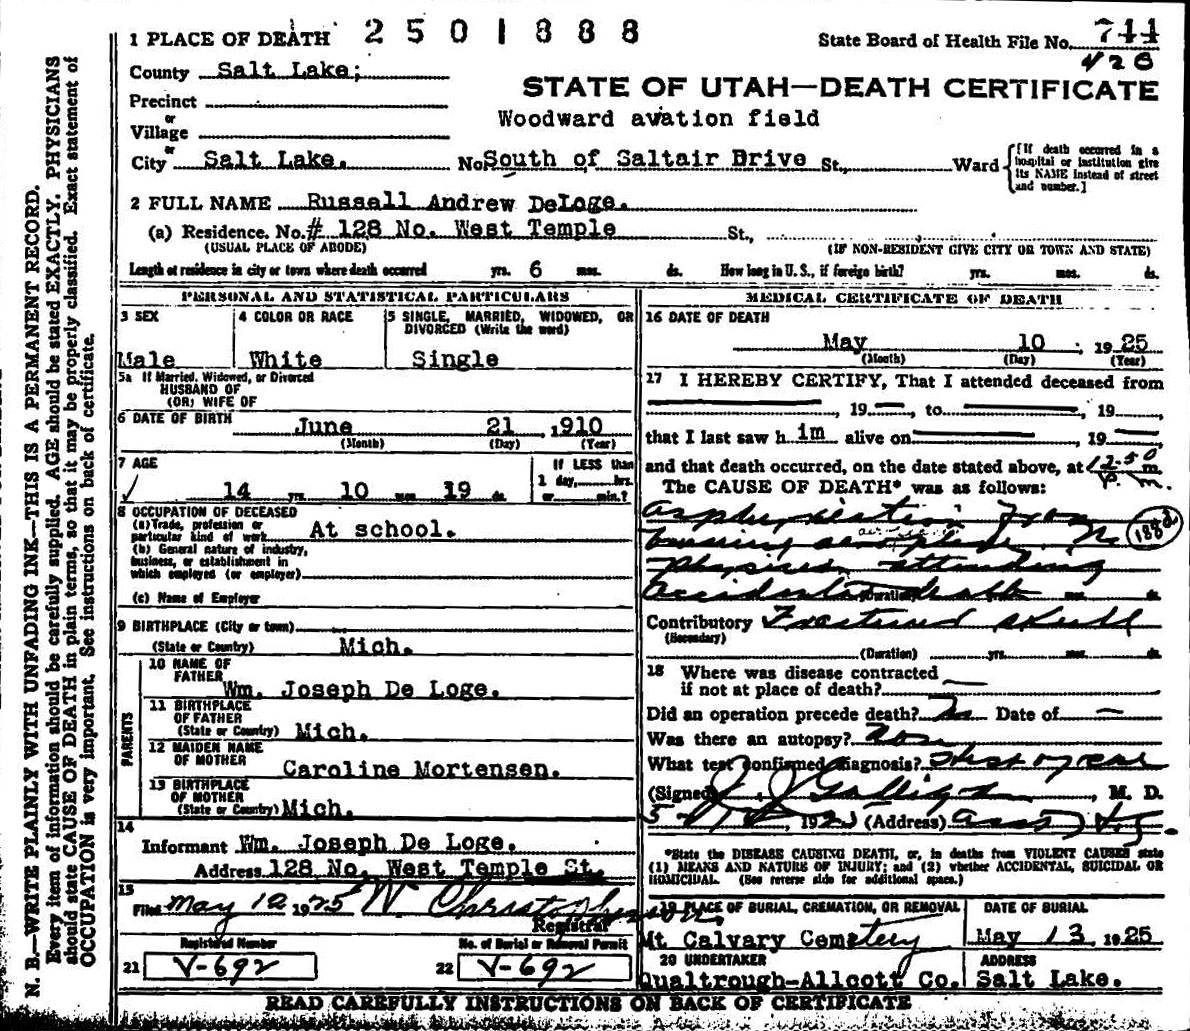 1 PLACE OF DEATH 2501888
State Board of Health File No. 744
428
County Salt Lake;
STATE OF UTAH—DEATH CERTIFICATE
Precinct
or
Woodward avation field
Village
or
City Salt Lake. No. South of Saltair Drive St., Ward
[If death occurred in a hospital or institution give its NAME instead of street and number.]
2 FULL NAME Russall Andrew DeLoge.
(a) Residence. No. # 128 No. West Temple St.,
(USUAL PLACE OF ABODE) (IF NON-RESIDENT GIVE CITY OR TOWN AND STATE)
Length of residence in city or town where death occurred yrs. 6 mos. ds. How long in U. S., if foreign birth? yrs. mos. ds.
PERSONAL AND STATISTICAL PARTICULARS
3 SEX 4 COLOR OR RACE 5 SINGLE, MARRIED, WIDOWED, OR
DIVORCED (Write the word)
Male White Single
5a If Married, Widowed, or Divorced
HUSBAND OF
(OR) WIFE OF
6 DATE OF BIRTH June 21 , 1910
(Month) (Day) (Year)
7 AGE If LESS than
1 day, hrs.
14 yrs. 10 mos. 19 ds. or min.?
8 OCCUPATION OF DECEASED
(a) Trade, profession or
particular kind of work At school.
(b) General nature of industry,
business, or establishment in
which employed (or employer)
(c) Name of Employer
9 BIRTHPLACE (City or town)
(State or Country) Mich.
PARENTS
10 NAME OF
FATHER Wm. Joseph De Loge.
11 BIRTHPLACE
OF FATHER
(State or Country) Mich.
12 MAIDEN NAME
OF MOTHER Caroline Mortensen.
13 BIRTHPLACE
OF MOTHER
(State or Country) Mich.
14
Informant Wm. Joseph De Loge.
Address 128 No. West Temple St.
15
Filed May 12 1925 W Christopherson
Registrar
Registered Number No. of Burial or Removal Permit
21 V-692 22 V-692
MEDICAL CERTIFICATE OF DEATH
16 DATE OF DEATH
May 10 , 1925
(Month) (Day) (Year)
17 I HEREBY CERTIFY, That I attended deceased from
, 19 , to , 19 ,
that I last saw him alive on , 19 ,
and that death occurred, on the date stated above, at 12-50 m.
P. m.
The CAUSE OF DEATH* was as follows:
Asphyxiation from
burning aeroplane. No 188d
Physician attending
Accidental death
(Duration) yrs. mos. ds.
Contributory Fractured skull
(Secondary)
(Duration) yrs. mos. ds.
18 Where was disease contracted
if not at place of death?
Did an operation precede death? No Date of —
Was there an autopsy? non
What test confirmed diagnosis?
(Signed) J J Galligan, M. D.
, 1925 (Address)
*State the DISEASE CAUSING DEATH, or, in deaths from VIOLENT CAUSES state
(1) MEANS AND NATURE OF INJURY; and (2) whether ACCIDENTAL, SUICIDAL OR
HOMICIDAL. (See reverse side for additional space.)
19 PLACE OF BURIAL, CREMATION, OR REMOVAL DATE OF BURIAL
Mt Calvary Cemetery May 13 1925
20 UNDERTAKER ADDRESS
Qualtrough-Allcott Co. Salt Lake.
READ CAREFULLY INSTRUCTIONS ON BACK OF CERTIFICATE
N. B.—WRITE PLAINLY WITH UNFADING INK—THIS IS A PERMANENT RECORD.
Every item of information should be carefully supplied. AGE should be stated EXACTLY. PHYSICIANS
should state CAUSE OF DEATH in plain terms, so that it may be properly classified. Exact statement of
OCCUPATION is very important. See instructions on back of certificate.